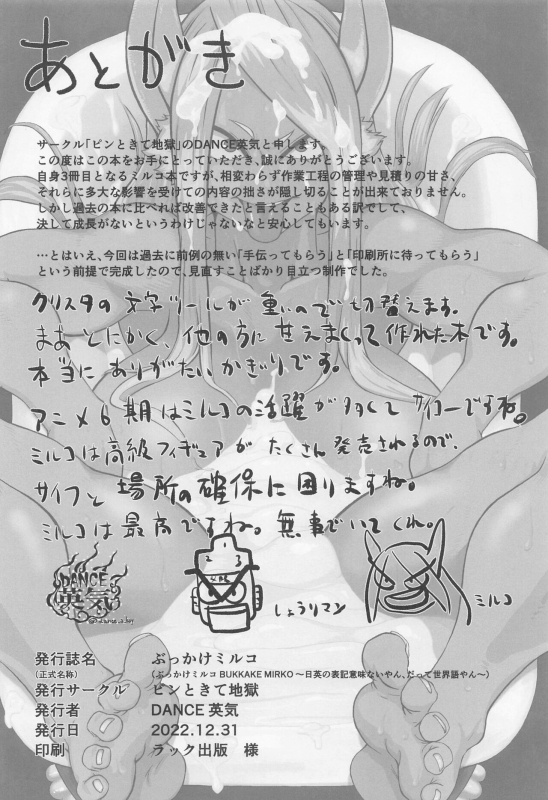 あとがき
サークル「ピンときて地獄」のDANCE英気と申します。
この度はこの本をお手にとっていただき、誠にありがとうございます。
自身3冊目となるミルコ本ですが、相変わらず作業工程の管理や見積りの甘さ、
それらに多大な影響を受けての内容の拙さが隠し切ることが出来ておりません。
しかし過去の本に比べれば改善できたと言えることもある訳でして、
決して成長がないというわけじゃないなと安心してもいます。
…とはいえ、今回は過去に前例の無い「手伝ってもらう」と「印刷所に待ってもらう」
という前提で完成したので、見直すことばかり目立つ制作でした。
クリスタの文字ツールが重いので切替えます。
まあとにかく、他の方に甘えまくって作れた本です。
本当にありがたいかぎりです。
アニメ6期はミルコの活躍が多くてサイコーですね。
ミルコは高級フィギュアがたくさん発売されるので、
サイフと場所の確保に困りますね。
ミルコは最高ですね。無事でいてくれ。
DANCE
英気
1
2 3
しょうりマン
ミルコ
発行誌名 ぶっかけミルコ
(正式名称) (ぶっかけミルコ BUKKAKE MIRKO 〜日英の表記意味ないやん、だって世界語やん〜)
発行サークル ピンときて地獄
発行者 DANCE 英気
発行日 2022.12.31
印刷 ラック出版 様